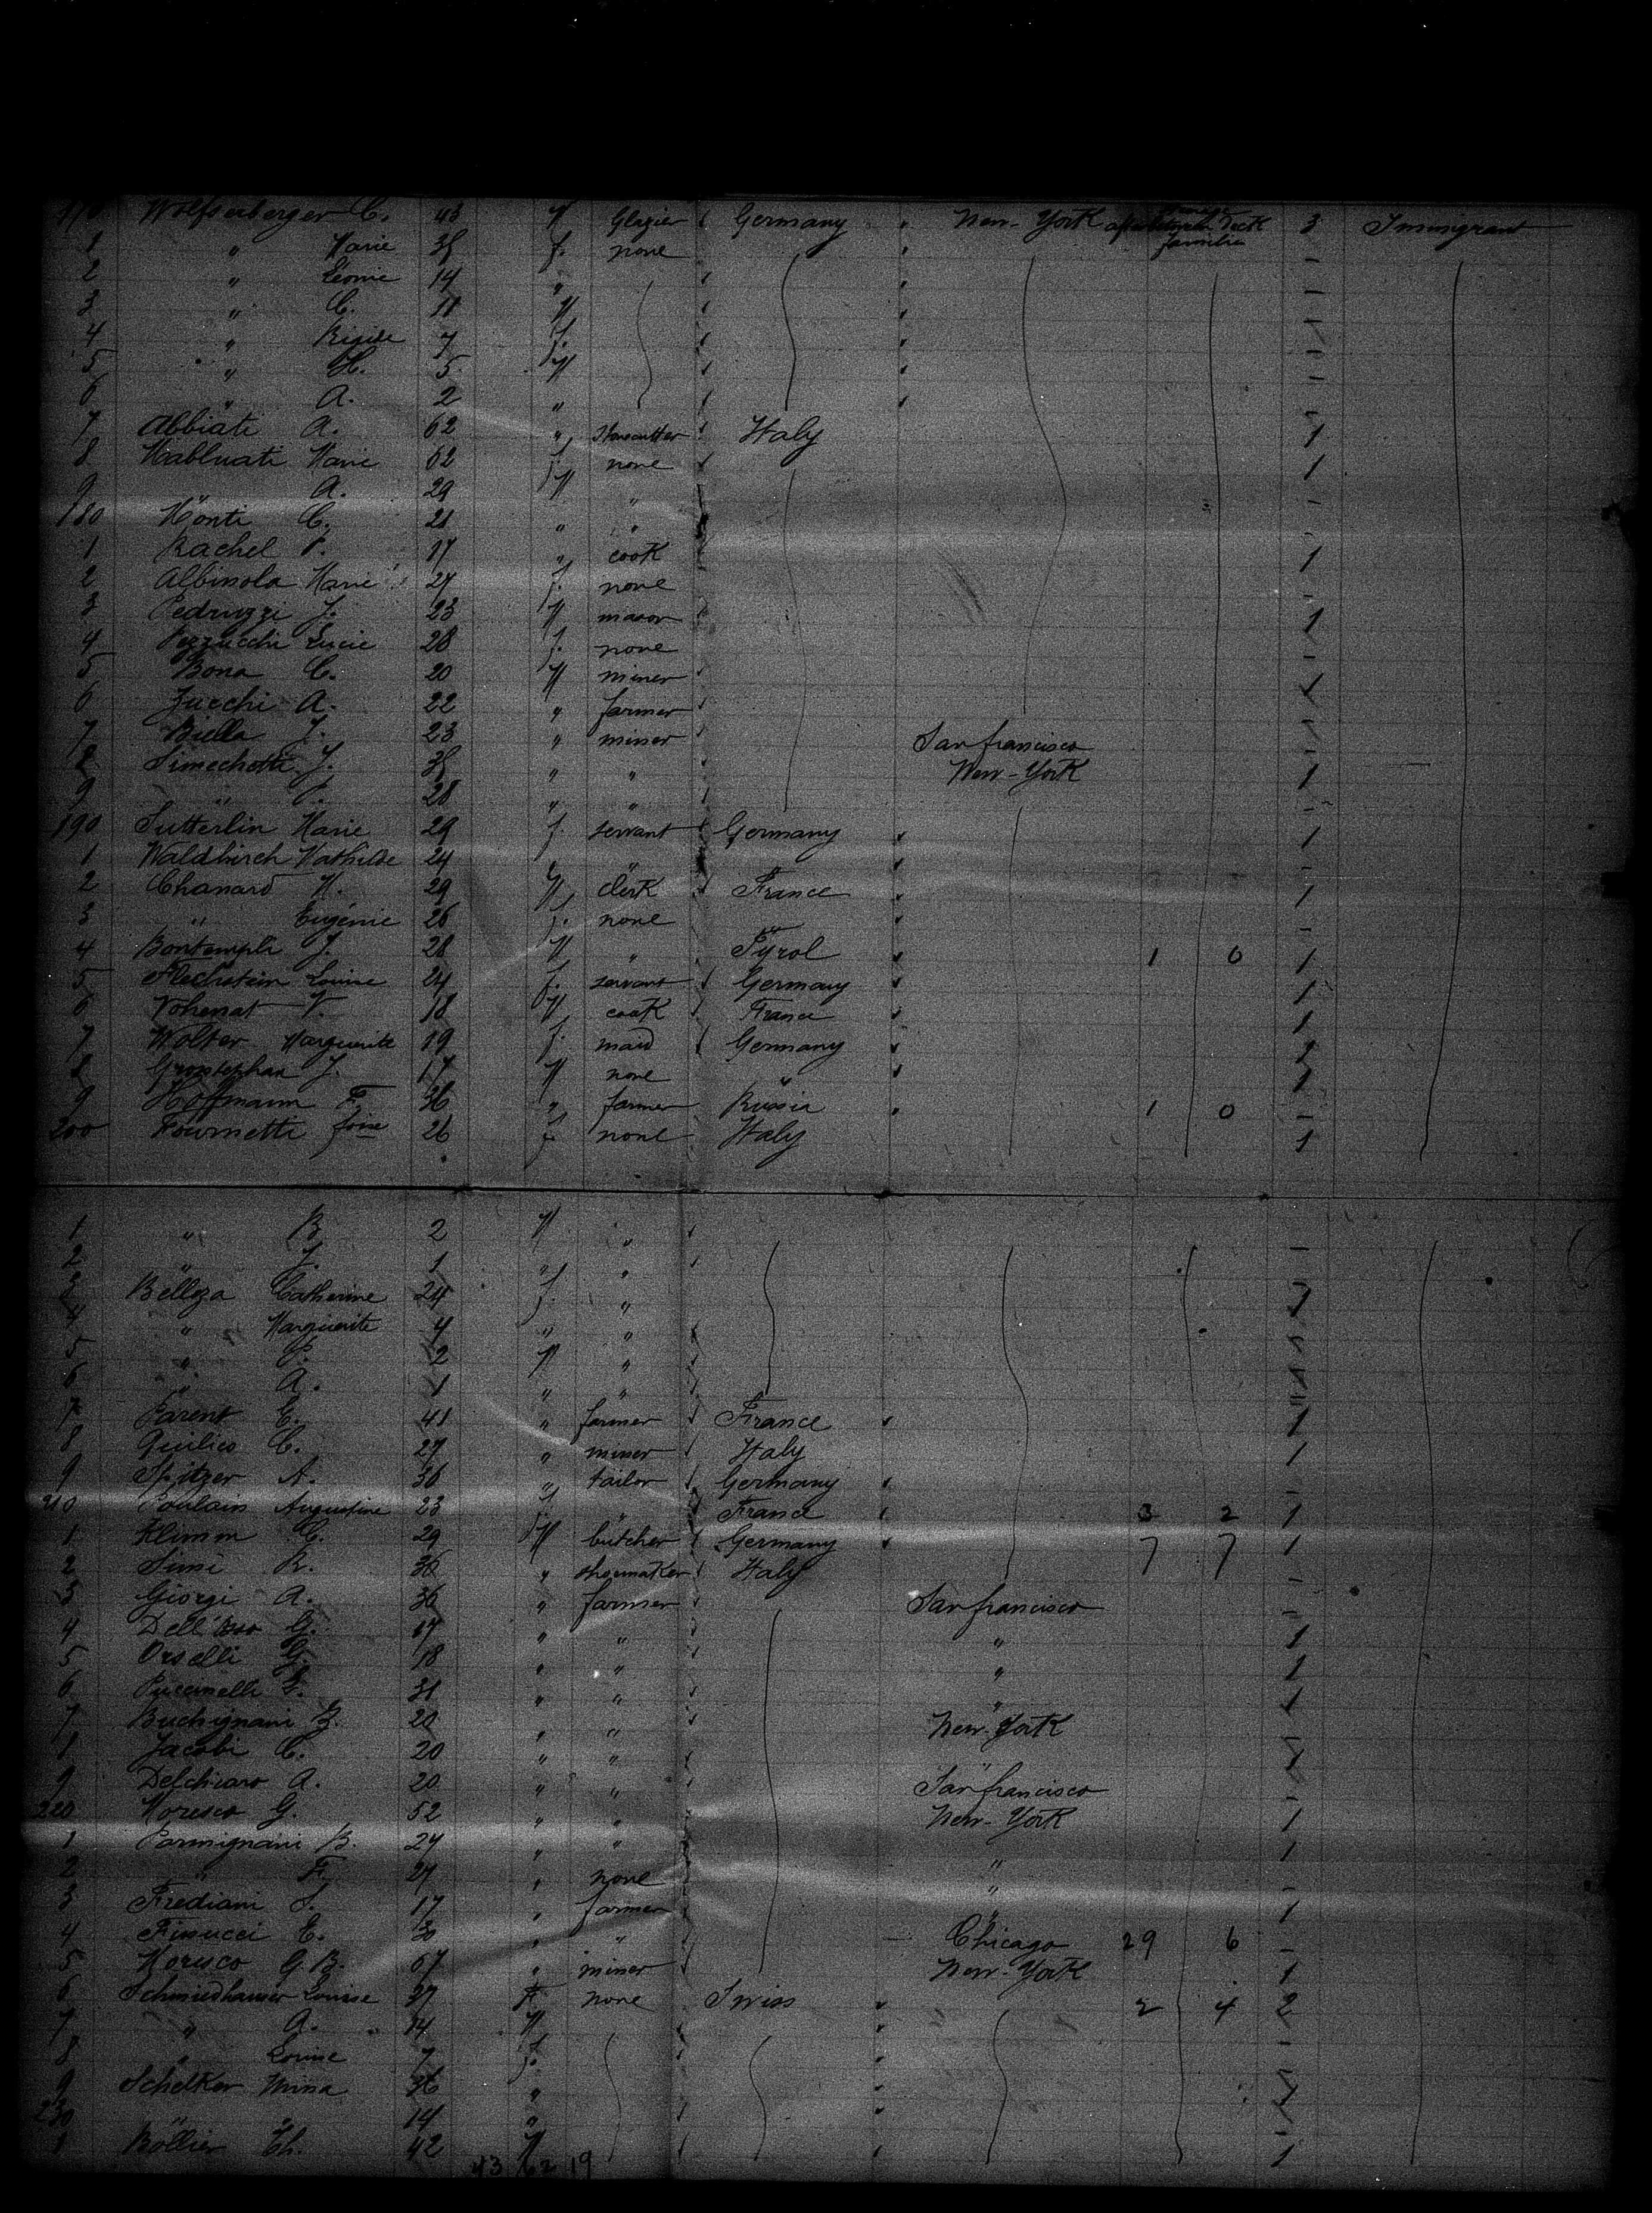 170 Wolfserberger C. 43 M Glazier Germany New-York 3 Immigrant
1 " Marie 38 f. none -
2 " Léonie 14 " -
3 " C. 11 M -
4 " 7 f. -
5 " H. 5 M -
6 " A. 2 " -
7 Abbiati A. 62 " Stonecutter Italy 1
8 Marie 62 f. none 1
9 " A. 29 M " -
180 Monti C. 21 " " -
1 Rachel P. 17 " cook 1
2 Albinola Marie 27 f. none -
3 Pedruzzi J. 23 M mason 1
4 Pezzucchi Lucie 28 f. none -
5 Bona C. 20 M miner 1
6 Zucchi A. 22 " farmer -
7 Biella J. 23 " miner San francisco -
8 Simechotti J. 38 " " New-York 1
9 " P. 28 " " -
190 Sutterlin Marie 29 f. servant Germany 1
1 Waldbirch Mathilde 24 " " -
2 Chanard M. 29 M clerk France 1
3 " Eugénie 26 f. none " -
4 Bontempli J. 28 M " Tyrol 1 0 1
5 Flechstein Louise 24 f. servant Germany 1
6 Vohenat V. 18 M cook France 1
7 Wolter Marguerite 19 f. maid Germany 1
8 Grosstephan J. 17 M none " 1
9 Hoffmann F. 36 " farmer Russia 1 0 -
200 Fournetti 26 f. none Italy 1
1 " B. 2 M " -
2 " J. 1 " " -
3 Belleza Catherine 24 f. " 1
4 " Marguerite 4 " "
5 " P. 2 M "
6 " A. 1 " "
7 Parent E. 41 " farmer France 1
8 Quilico C. 27 " miner Italy 1
9 Spitzer A. 36 " tailor Germany -
210 Poulain Augustine 23 f. " France 3 2 1
1 Klimm C. 29 M butcher Germany 7 7 1
2 Simi R. 36 " shoemaker Italy -
3 Giorgi A. 36 " farmer San francisco -
4 Dell' G. 17 " " " 1
5 Orselli G. 18 " " " 1
6 Puccinelli G. 31 " " " 1
7 Buchignani G. 20 " " New-York -
Jacobi C. 20 " " " 1
9 Delchiaro A. 20 " " San francisco -
220 Moresco G. 52 " " New-York 1
1 Parmignani B. 24 " " " 1
2 " F. 27 " none " -
3 Frediani S. 17 " farmer " 1
4 Finucci E. 30 " " Chicago 29 6 -
5 Moresco G.B. 67 " miner New-York 1
6 Schmiedhauser Louise 37 F. none Swiss 2 4 2
7 " A. 14 M -
8 " Louise 7 f. -
9 Schelker Mina 36 " 1
230 " " 14 " -
1 Bollier Th. 42 M 1
43 62 19